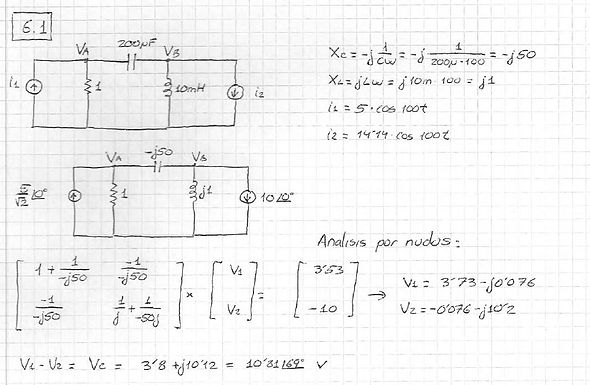 6.1
200μF
VA
VB
i1
1
10mH
i2
Xc = -j 1/Cω = -j 1/200μ·100 = -j50
XL = jLω = j10m·100 = j1
i1 = 5·cos 100t
i2 = 14'14·cos 100t
-j50
VA
VB
5/√2 |0°
1
j1
10 |0°
Analisis por nudos:
[ 1 + 1/-j50   -1/-j50 ] × [ V1 ] = [ 3'53 ] → V1 = 3'73 - j0'076
[ -1/-j50   1/j + 1/-50j ]   [ V2 ]   [ -10 ]   V2 = -0'076 - j10'2
V1 - V2 = Vc = 3'8 + j10'12 = 10'81 |69° V